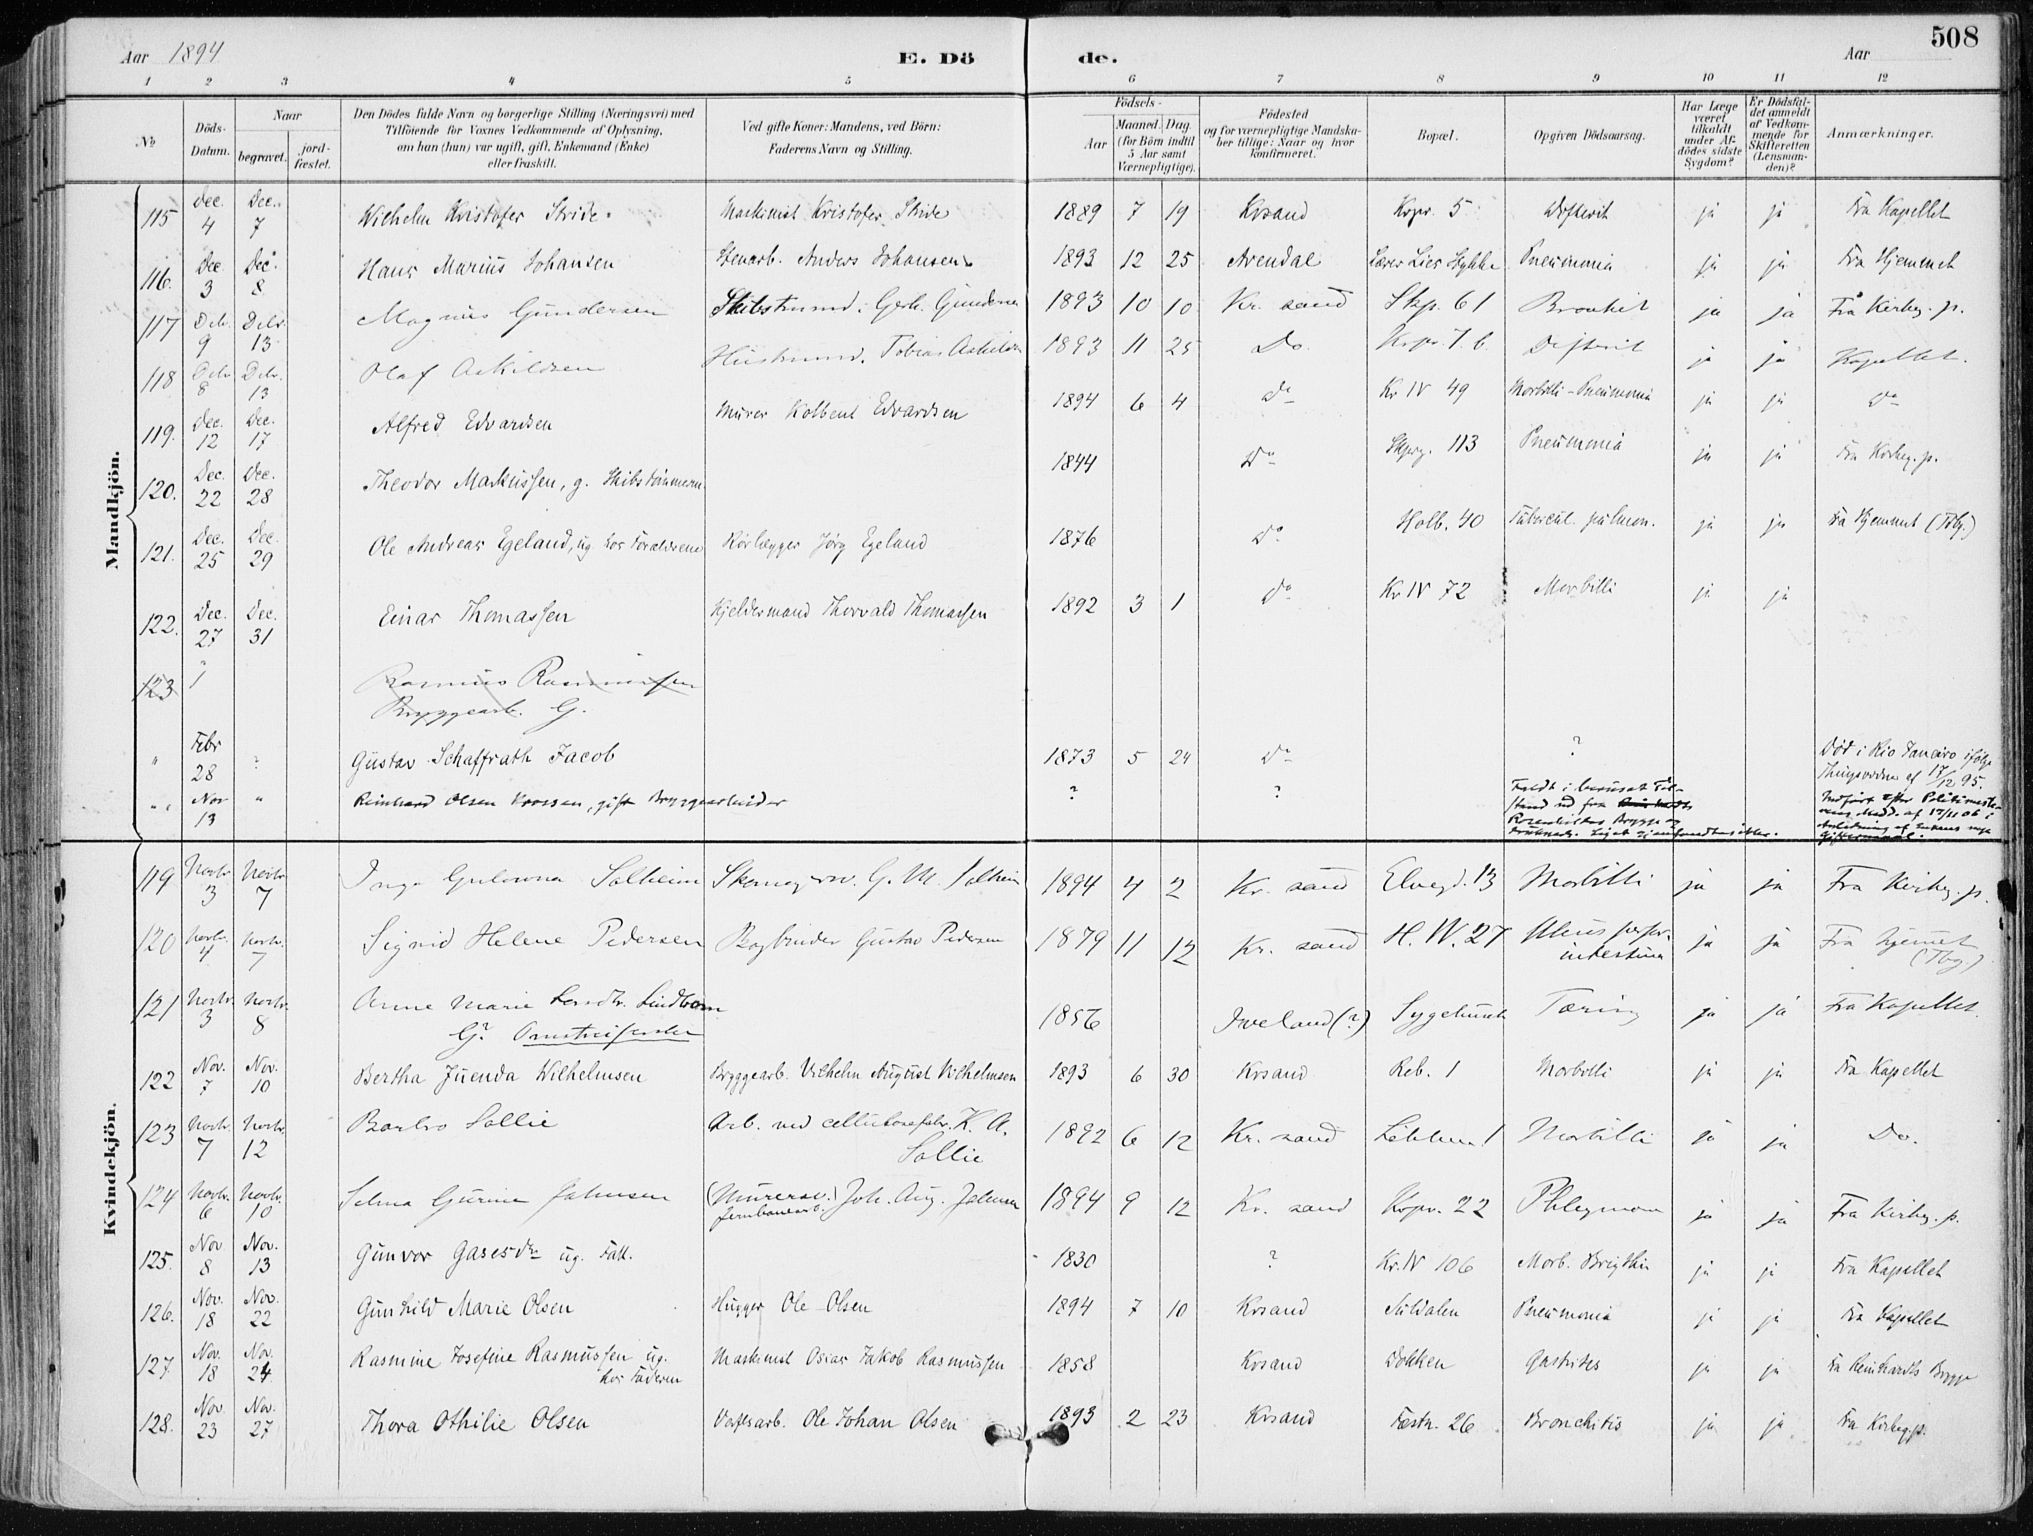 508
Aar 1894 E. Dö de. Aar
1 2 3 4 5 6 7 8 9 10 11 12
No
Döds-Datum.
Naar
begravet.
jord-fæstet.
Den Dödes fulde Navn og borgerlige Stilling (Næringsvei) med
Tilföiende for Voxnes Vedkommende af Oplysning,
om han (hun) var ugift, gift, Enkemand (Enke)
eller fraskilt.
Ved gifte Koner: Mandens, ved Börn:
Faderens Navn og Stilling.
Födsels-
Aar
Maaned. Dag
(for Börn indtil
5 Aar samt
Værnepligtige).
Födested
og for værnepligtige Mandska-
ber tillige: Naar og hvor
konfirmeret.
Bopæl.
Opgiven Dödsaarsag.
Har Læge
været
tilkaldt
under Af-
dödes sidste
Sygdom?
Er Dödsfal-
det anmeldt
af Vedkom-
mende for
Skifteretten
(Lensman-
den)?
Anmærkninger.
Mandkjön.
115 Dec. 4 Dec. 7 Wilhelm Kristofer Stride Maskinist Kristofer Stride 1889 7 19 Krsand Krpr. 5 Difterit ja ja Fra Kapellet
116. Dec. 3 Dec. 8 Hans Marius Johansen Stenarb. Anders Johansen 1893 12 25 Arendal Pneumonia ja ja Fra Hjemmet
117 Decbr. 9 Decbr. 13 Magnus Gundersen Skibstømmd. Gerh. Gundersen 1893 10 10 Kr. sand Skp. 61 Bronkit ja ja Fra Kirkeg. p.
118 Decbr. 8 Decbr. 13 Olaf Askildsen Tobias Askildsen 1893 11 25 Do. Difterit ja ja Kapellet.
119. Dec. 12 Dec. 17 Alfred Edvardsen Murer Kolbent Edvardsen 1894 6 4 do Kr IV 49 Morbilli - Pneumonia ja ja do
120. Dec. 22 Dec. 28 Theodor Markussen, g. Skibstømmerm. 1844 Do 113 Pneumonia ja ja Fra Kirkeg. p.
121. Dec. 25 Dec. 29 Ole Andreas Egeland, ug. hos Forældrene Rørlægger Jørg Egeland 1876 do Holb. 40 Tubercul. pulmon. ja ja Fra Hjemmet (Tbg.)
122. Dec. 27 Dec. 31 Einar Thomassen Kjeldermand Thorvald Thomassen 1892 3 1 do Kr IV 72 Morbilli ja ja
123 1 Rasmus Rasmussen
Bryggearb. G.
" Febr 28 ? Gustav Schaffrath Jacob 1873 5 24 do ? Död i Rio Janeiro ifølge
17/12 95.
" Nov 13 " Reinhard Olsen gift Bryggearbeider ? ? Faldt i beruset Til-
stand ud fra
Brygge og
druknede.
Indført efter Politimeste-
rens Medd. af 17/11 06 i
Anledning af Enkens nye
Giftermaal.
Kvindekjön.
119 Novbr. 3 Novbr. 7 Solheim G. M. Solheim 1894 4 2 Kr. sand Elveg. 13 Morbilli ja ja Fra Kirkeg. p.
120 Novbr. 4 Novbr. 7 Sigrid Helene Pedersen Bogbinder Gustav Pedersen 1879 11 12 Kr. sand H. IV. 27 Ulcus perfor.
intestina ja ja Fra hjemmet
(Tbg.)
121 Novbr. 3 Novbr. 8 Anne Marie
G? 1856 Iveland (?) Sygehuset Tæring ja ja Fra Kapellet.
122 Nov. 7 Nov. 10 Bertha Juenda Wilhelmsen Bryggearb. Vilhelm August Vilhelmsen 1893 6 30 Krsand Reb. 1 Morbilli ja ja Fra Kapellet
123 Novbr. 7 Novbr. 12 Barbro Sollie Arb. ved cellulosefabr. K. A.
Sollie 1892 6 12 Kr. sand Morbilli ja ja Do.
124 Novbr. 6 Novbr. 10 Selma Gurine Johnsen (Murersv.) Joh. Aug. Johnsen
Jernbanearb. 1894 9 12 Kr. sand Krpr. 22 Phlegmone ja ja Fra Kirkeg. p.
125. Nov 8 Nov. 13 Gunvor Gasesdtr ug. Fatt. 1830 ? Kr. IV 106 Morb. Brigthii ja ja Fra Kapellet
126. Nov. 18 Nov. 22 Gunhild Marie Olsen Hugger Ole Olsen 1894 7 10 Krsand Suldalen Pneumonia ja ja Fra Kapellet
127 Nov. 18 Nov. 24 Rasmine Josefine Rasmussen ug.
hos Faderen Maskinist Oscar Jakob Rasmussen 1858 Krsand Dokken Gastritis ja ja Fra Reinhardts Brygge
128. Nov. 23 Nov. 27 Thora Othilie Olsen Verftsarb. Ole Johan Olsen 1893 2 23 Krsand Fæstn. 26 Bronchitis ja ja Fra Kirkeg.p.